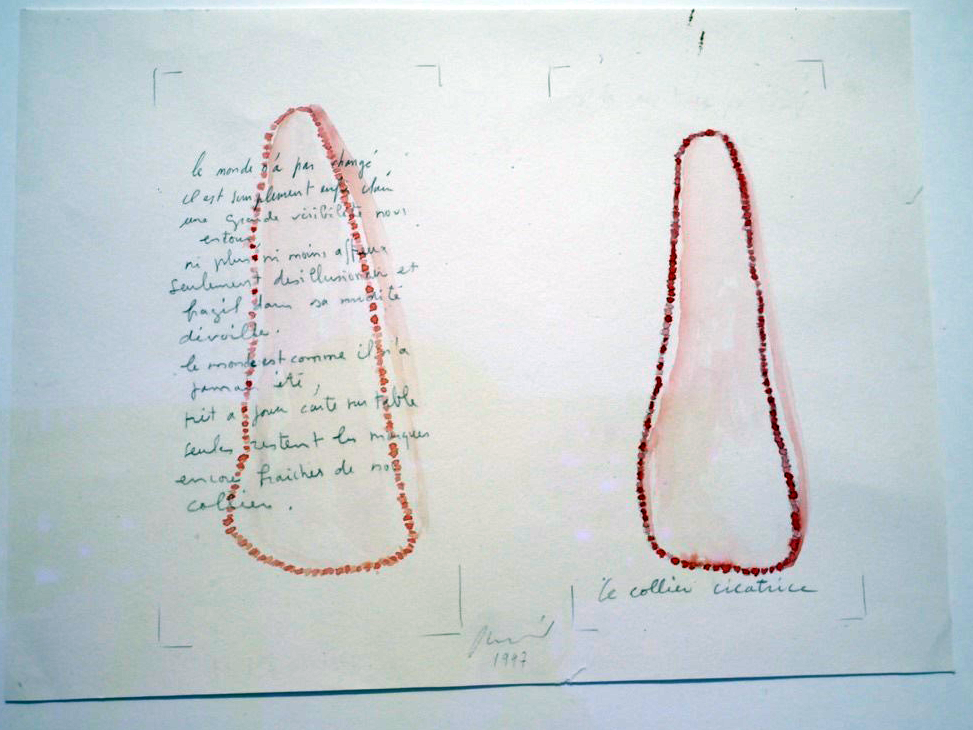 le monde n'a pas changé
il est simplement enfin clair
une grande visibilité nous
entoure
ni plus ni moins affreux
seulement desillusionair et
fragil dans sa nudité
dévoilée.
le monde est comme il n'a
jamais été,
mit a jour carte sur table
seules restent les marques
encore fraiches de nos
collier.
le collier cicatrice
1997